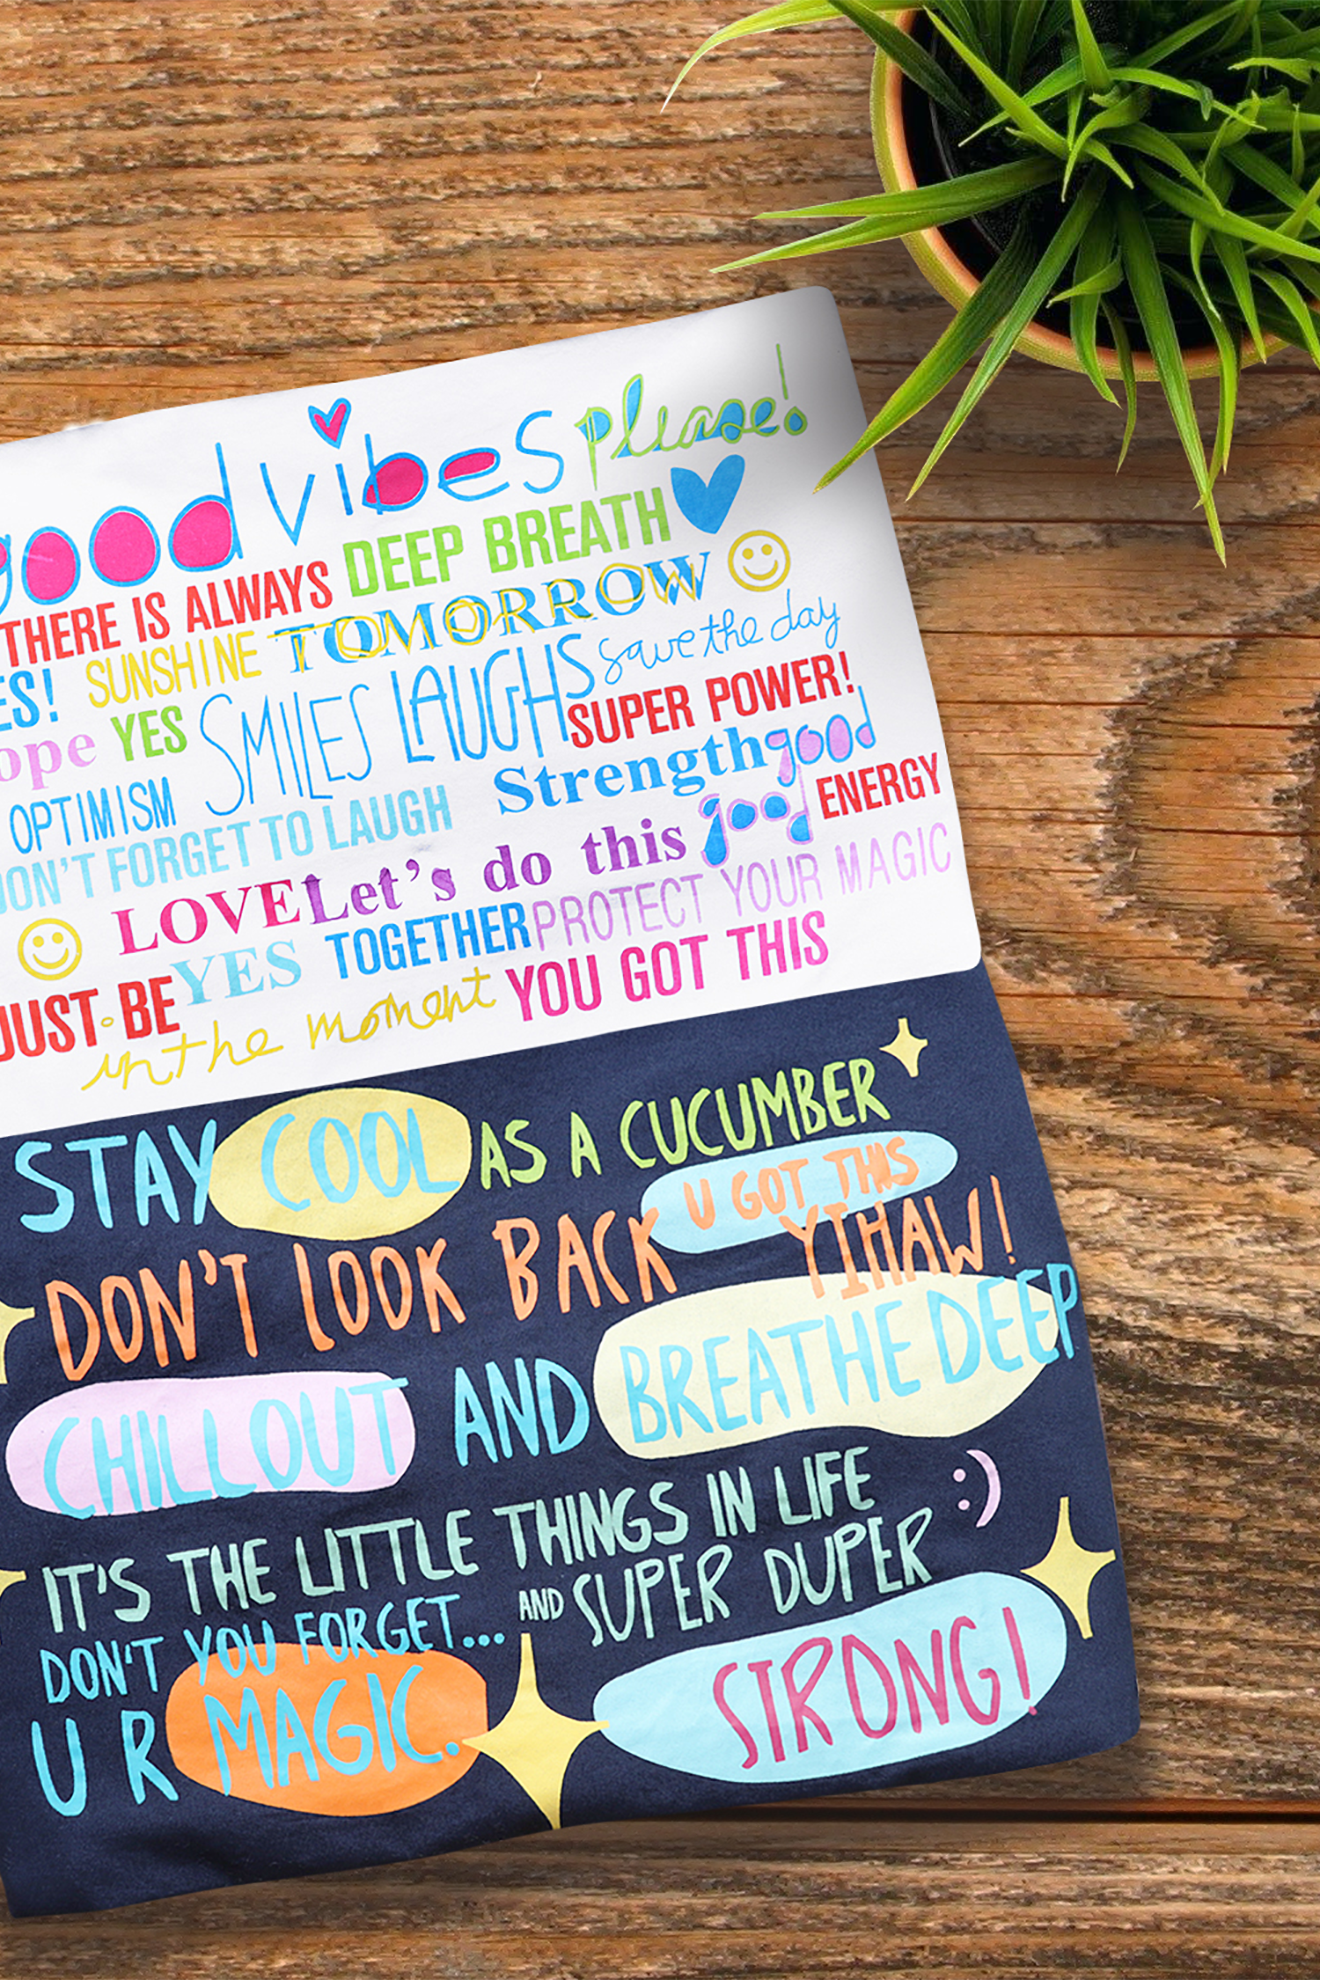 good vibes please!
THERE IS ALWAYS DEEP BREATH
ES! SUNSHINE TOMORROW
ope YES SMILES LAUGHS save the day
SUPER POWER!
OPTIMISM Strength good
DON'T FORGET TO LAUGH good ENERGY
LOVE Let's do this
JUST BE YES TOGETHER PROTECT YOUR MAGIC
in the moment YOU GOT THIS
STAY COOL AS A CUCUMBER
U GOT THIS
DON'T LOOK BACK YIHAW!
CHILLOUT AND BREATHE DEEP
IT'S THE LITTLE THINGS IN LIFE :)
DON'T YOU FORGET... AND SUPER DUPER
U R MAGIC. STRONG!